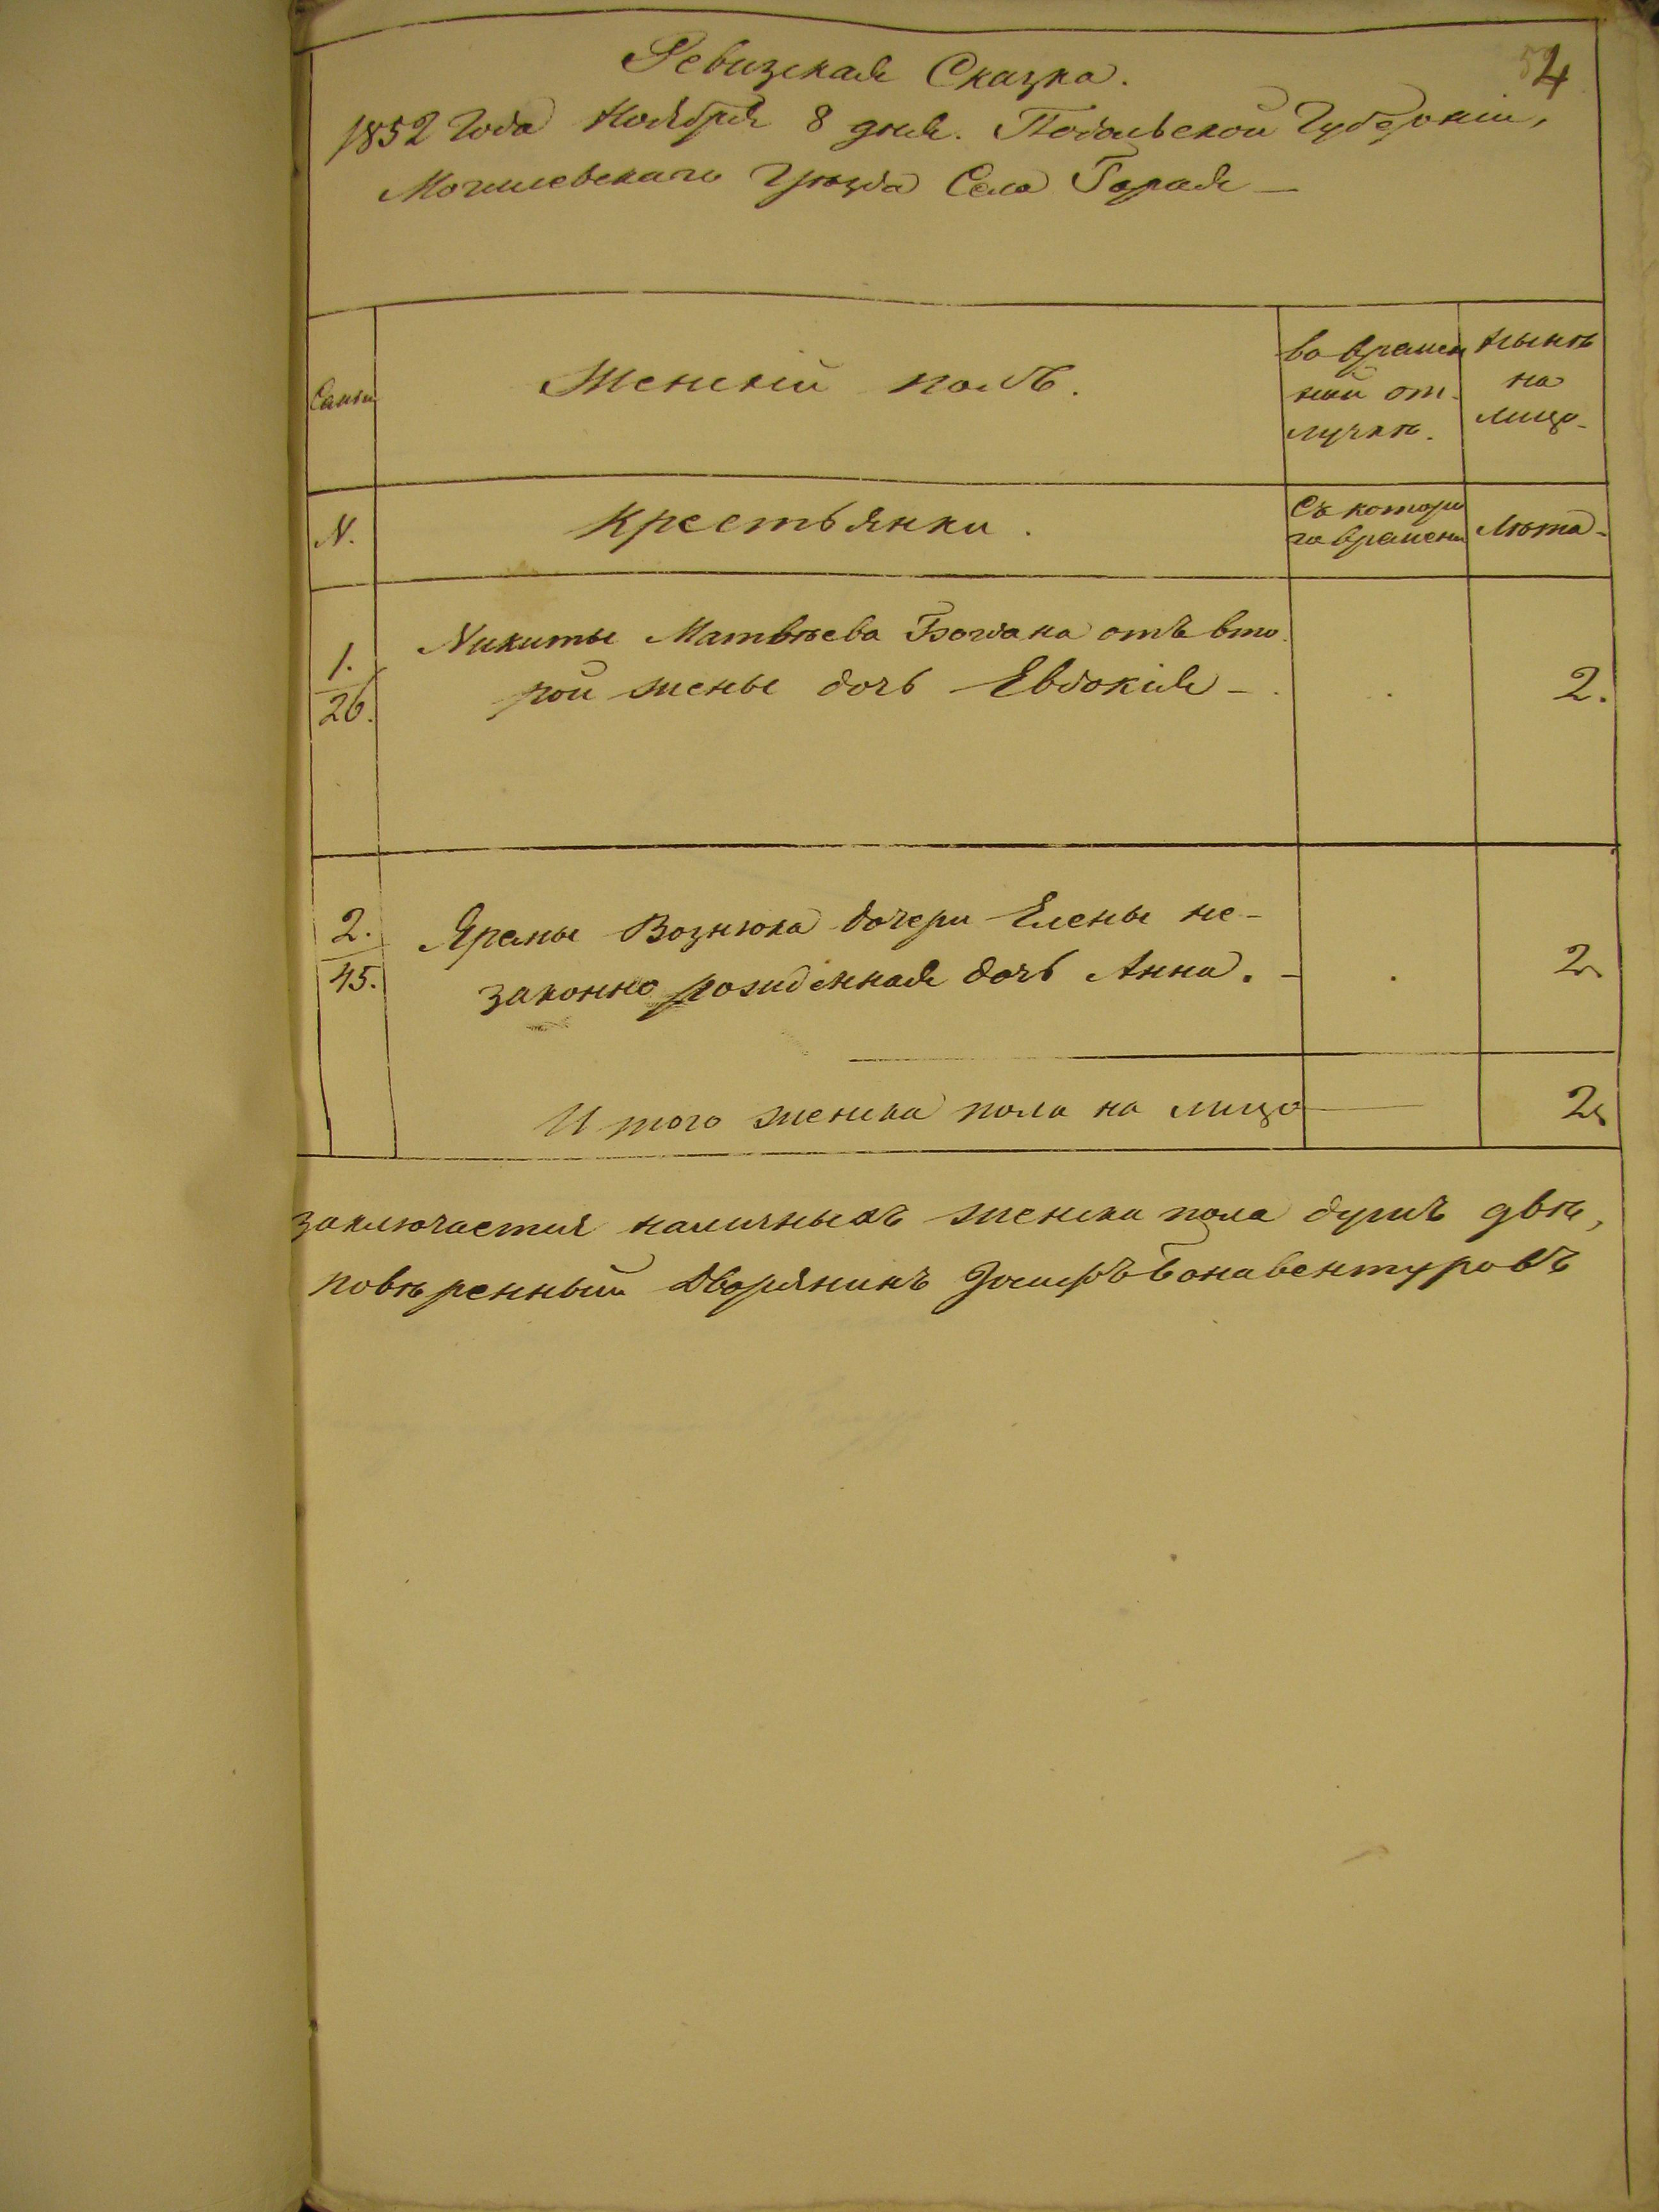 Ревизская Сказка.
54
1852 Года Ноября 8 дня. Подольской Губерніи,
Могилевскаго Уѣзда Села Гарая
Женскій полъ.
во времен
ной от-
лучкѣ.
Нынѣ
на
лицо
N.
Крестьянки.
Съ котора
го времени
Лѣта
1.
26.
Никиты Матвѣева Богдана отъ вто
рой жены дочь Евдокія
2.
2.
45.
Яремы Вознюка дочери Елены не-
законно рожденная дочь Анна.
2
И того женска пола на лицо
2
заключается наличныхъ женска пола душъ двѣ,
повѣренный Дворянинъ Іосифъ Бонавентуровъ